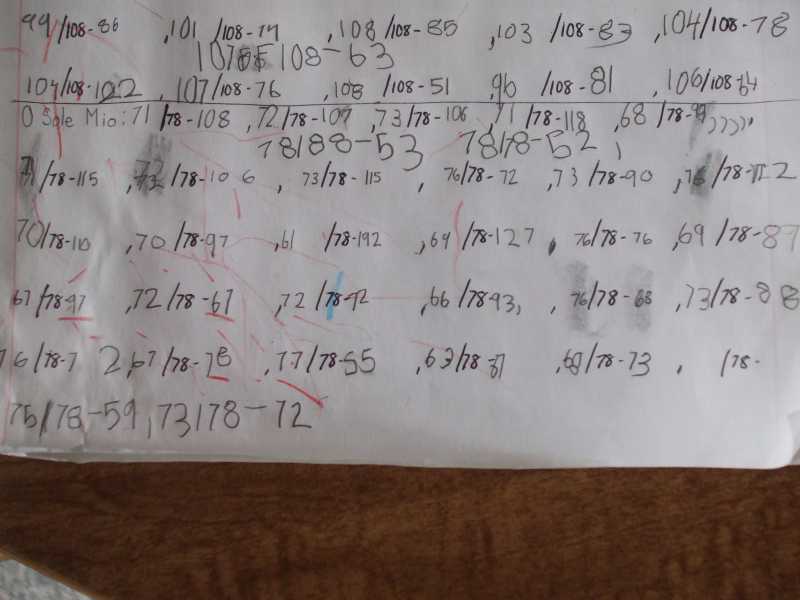 99/108-86 ,101 /108-79 ,108 /108-85 ,103 /108-83 ,104/108-78
108-63
104/108-122 ,107/108-76 ,108 /108-51 ,96 /108-81 ,106/108-64
O Sole Mio: 71 /78-108 ,72/78-107 ,73/78-106 ,71 /78-118 ,68 /78-99 ,,,,,
78/88-53 78/78-52 ,
71/78-115 ,72/78-106 , 73/78-115 , 76/78-72 ,73/78-90 ,76/78-
70/78-110 ,70/78-97 ,61 /78-192 ,69/78-127 , 76/78-76 ,69/78-87
67/78-97 ,72/78-67 ,72/78-92 ,66/78-93, , 76/78-68 ,73/78-88
76/78-72,67/78-78 ,77/78-55 ,63/78-87 ,69/78-73 , /78-
75/78-59,73/78-72